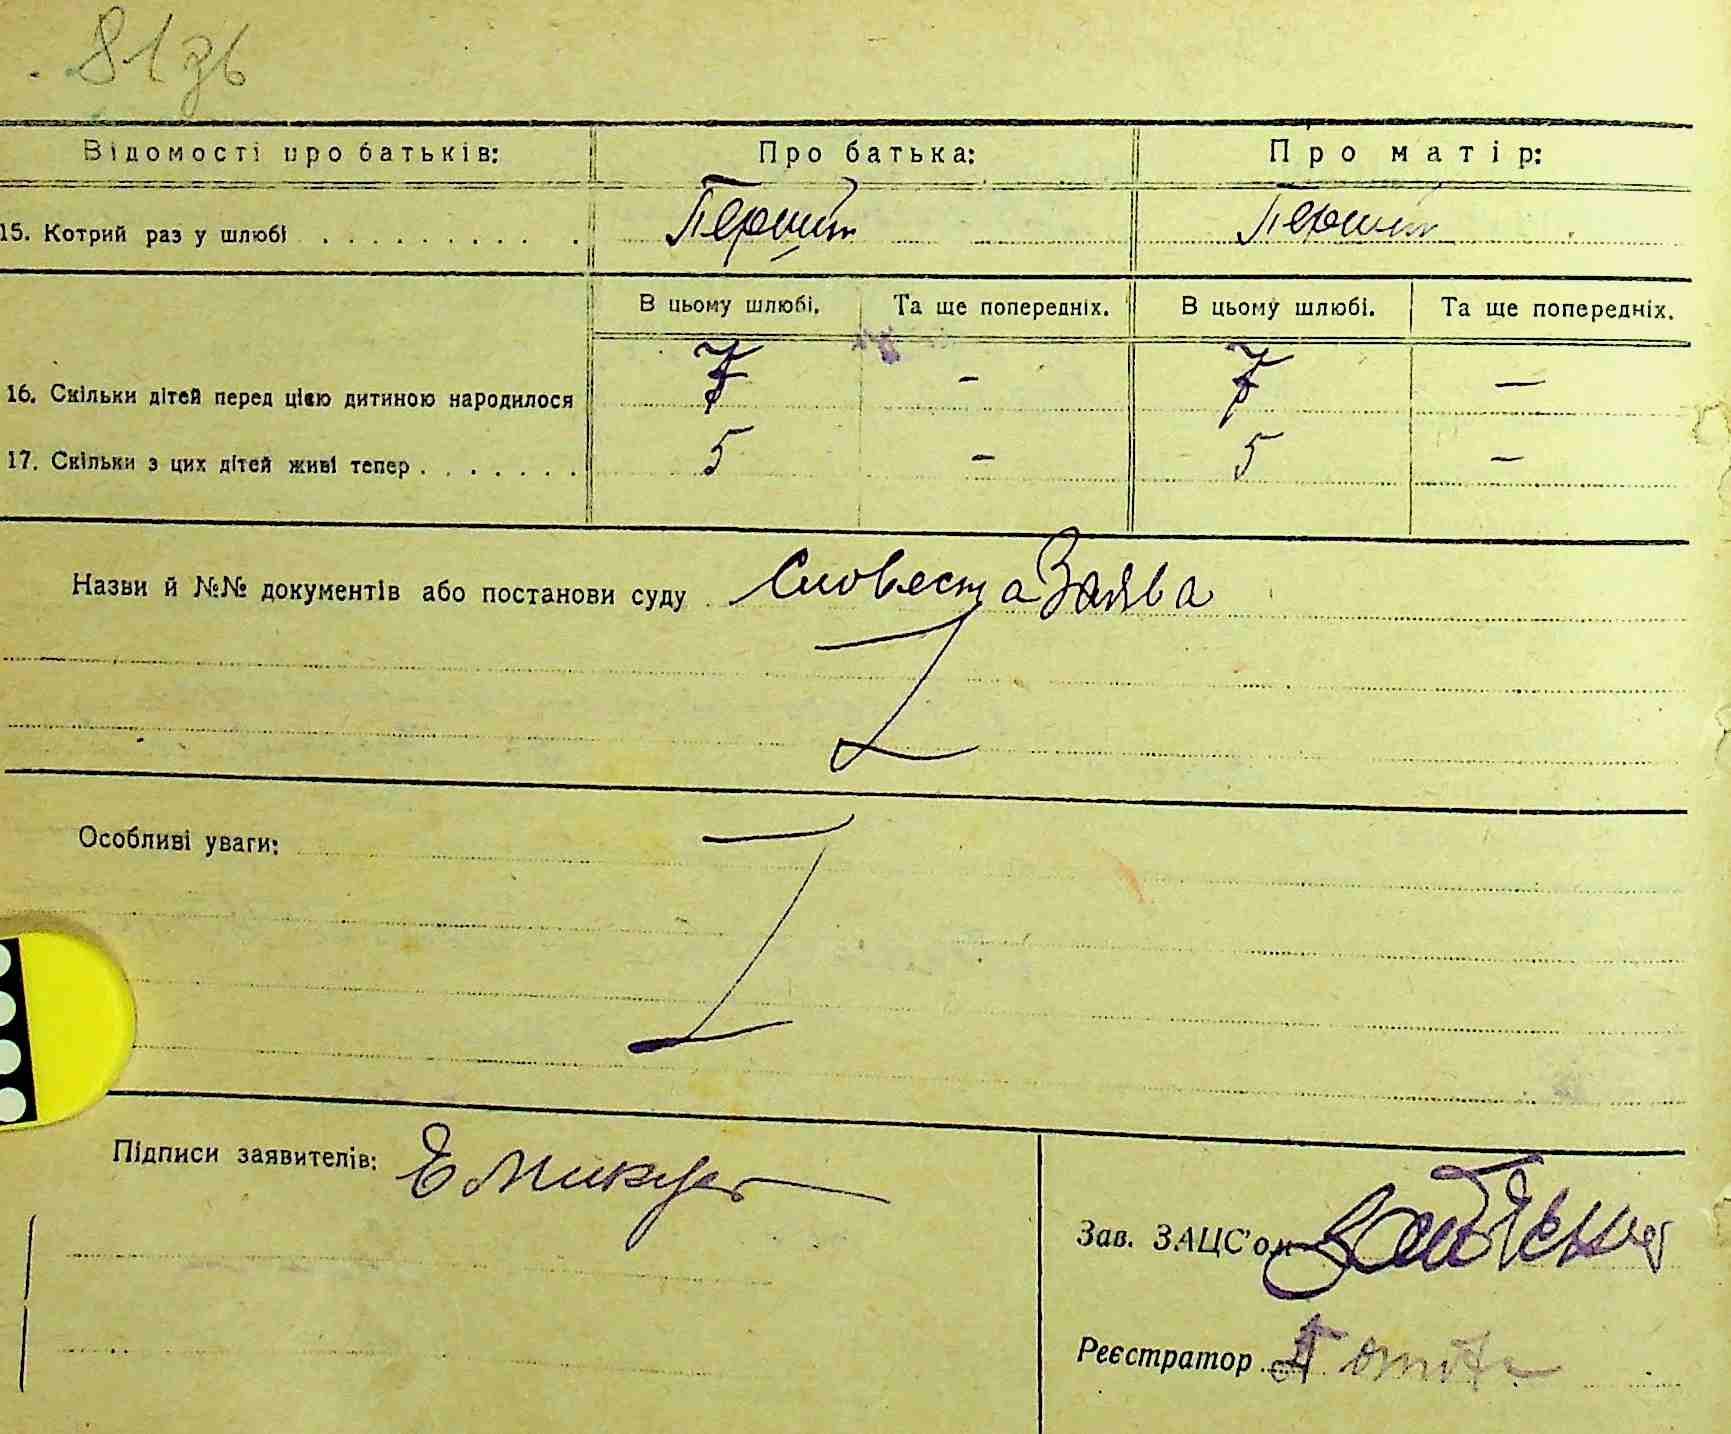 81 зв
Відомості про батьків: Про батька: Про матір:
15. Котрий раз у шлюбі . . . . . . . . . . Перший Перший
В цьому шлюбі. Та ще попередніх. В цьому шлюбі. Та ще попередніх.
16. Скільки дітей перед цією дитиною народилося 7 - 7 —
17. Скільки з цих дітей живі тепер . . . . . . . 5 - 5 —
Назви й №№ документів або постанови суду Словесна Заява
Особливі уваги:
Підписи заявителів:
Зав. ЗАЦС'ом
Реєстратор